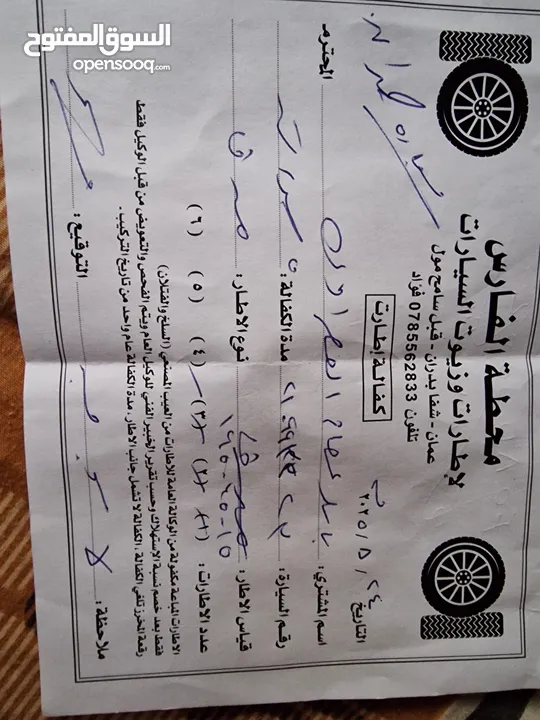 السوق المفتوح
opensooq.com
محطة الفارس
لإطارات وزيوت السيارات
عمان - شفا بدران - قبل سامح مول
تلفون 0785562833 فؤاد
كفالة إطارت
التاريخ ٢٤ / ٥ / ٢٠٢٥
اسم المشتري : المحترم
رقم السيارة : مدة الكفالة :
قياس الاطار : ١٩٥-٦٥-١٥ نوع الاطار :
عدد الاطارات : (١) (٢) (٣) (٤) (٥) (٦)
الاطارات المباعة مكفولة من الوكالة العامة للاطارات من العيب المصنعي (السلخ والفتلان)
فقط بعد خصم نسبة الإستهلاك وحسب تقرير الخبير الفني للوكيل العام ويتم الفحص والتعويض من قبل الوكيل فقط
رقمة المخرز تلغي الكفالة ، الكفالة لا تشمل جانب الاطار ، مدة الكفالة عام واحد من تاريخ التركيب .
ملاحظة : لا يوجد التوقيع :